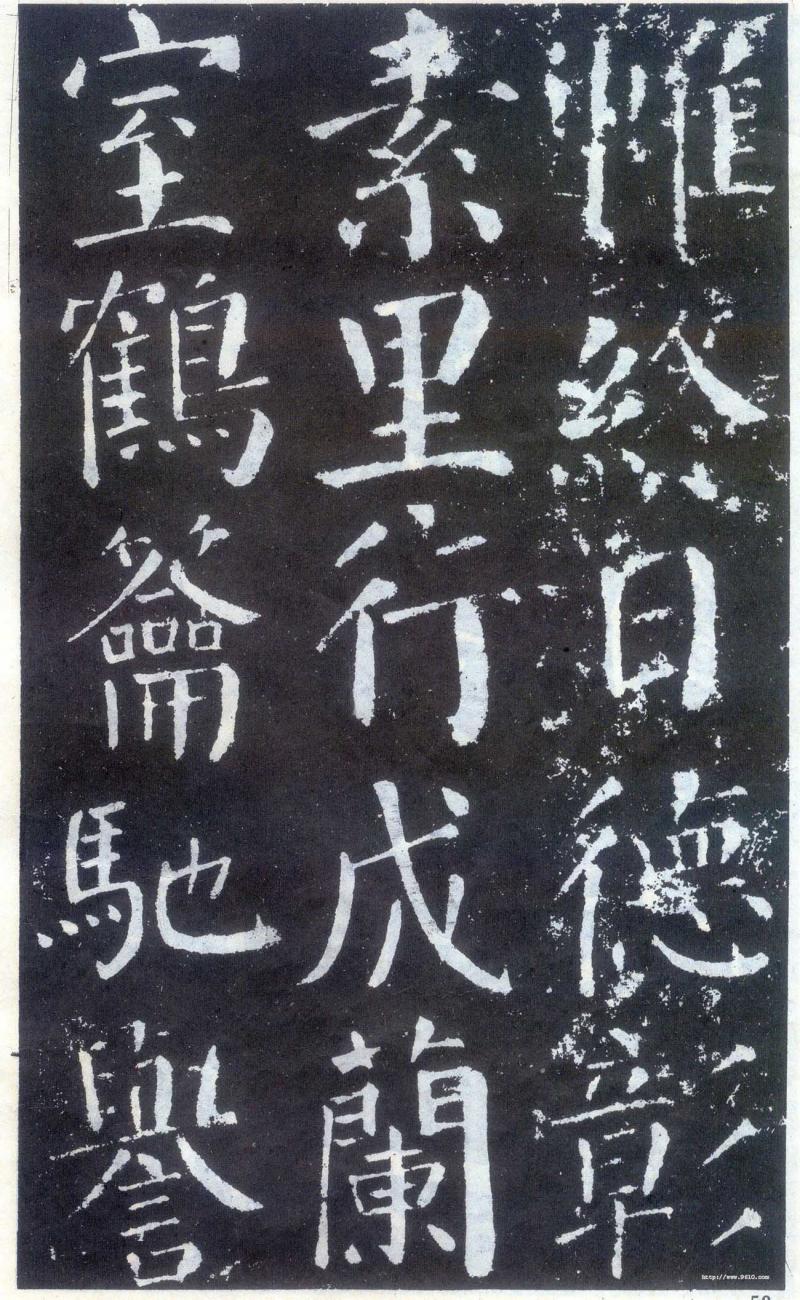 惟終日德彰
素里行成蘭
室鶴籥馳譽
http://www.9610.com
50